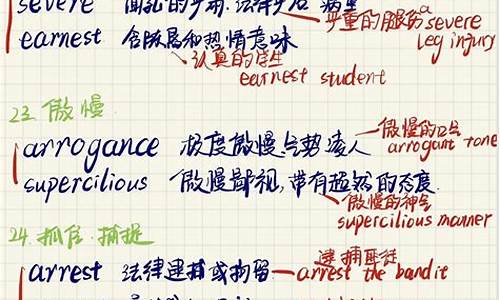 severe
严重的腿伤 a severe leg injury
earnest 含既属和热情意味
认真的学生
earnest student
23. 傲慢
arrogance 极度傲慢.气势凌人
傲慢的口气
arrogant tone
supercilious 傲慢鄙视,带有超然的态度
傲慢的神气
supercilious manner
24. 抓住.捕捉
arrest 法律逮捕或拘留
逮捕匪徒
arrest the bandit